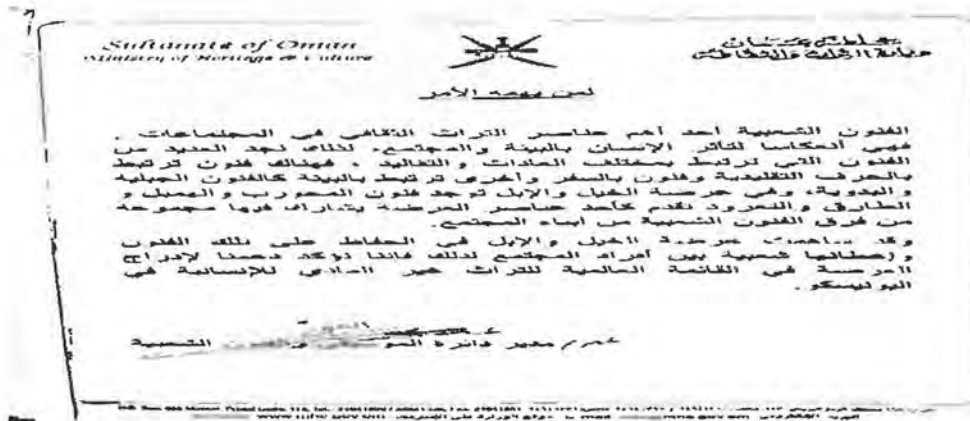 Sultanate of Oman
Ministry of Heritage & Culture
سلطنة عمان
وزارة التراث والثقافة
لمن يهمه الأمر
الفنون الشعبية أحد أهم عناصر التراث الثقافي في المجتمعات .
فهي انعكاسا لتأثر الإنسان بالبيئة والمجتمع، لذلك نجد العديد من
الفنون التي ترتبط بمختلف العادات والتقاليد ، فهناك فنون ترتبط
بالحرف التقليدية وفنون بالسفر وأخرى ترتبط بالبيئة كالفنون الجبلية
والبدوية، وفي عرضة الخيل والإبل توجد فنون المحورب والهمبل و
الطارق والتغرود تقدم كأحد عناصر العرضة يتشارك فيها مجموعة
من فرق الفنون الشعبية من أبناء المجتمع.
وقد ساهمت عرضة الخيل والإبل في الحفاظ على تلك الفنون
وإعطائها شعبية بين أفراد المجتمع لذلك فإننا نؤكد دعمنا لإدراج
العرضة في القائمة العالمية للتراث غير المادي للإنسانية في
اليونيسكو.
مدير دائرة الموسيقى والفنون الشعبية